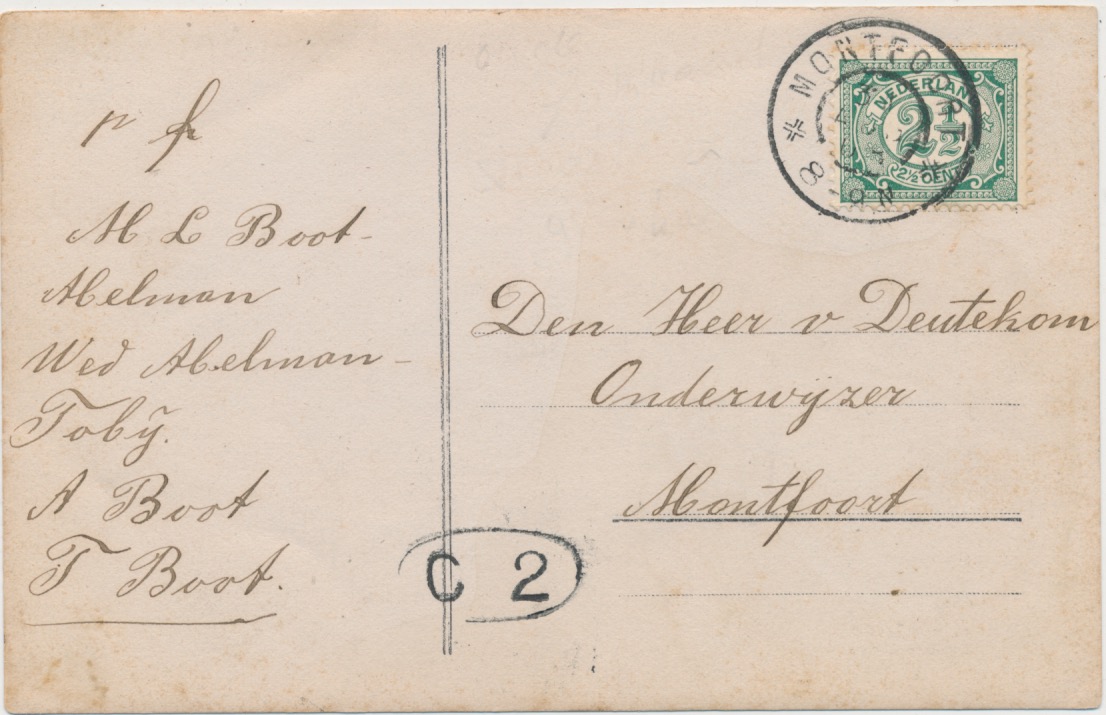 p f
M L Boot
Abelman
Wed Abelman
Toby.
A Boot
T Boot.
MONTFOORT
8
NEDERLAND
2½
2½ CENT
Den Heer v Deutekom
Onderwyzer
Montfoort
C 2